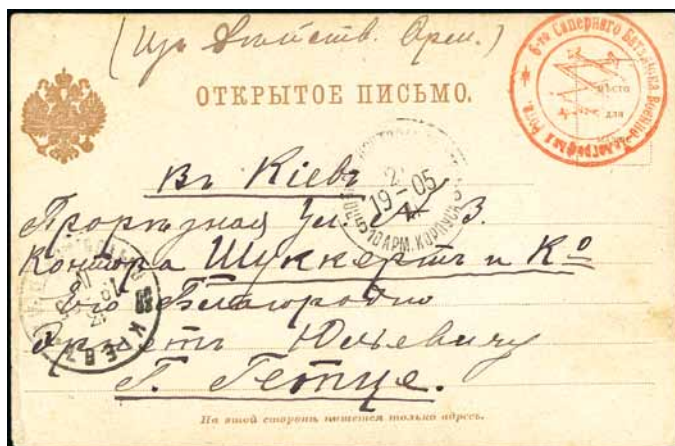 (Изъ Дѣйств. Арм.)
6-го Сапернаго Баталiона Военно-Телеграфная Рота.
мѣсто
для
ОТКРЫТОЕ ПИСЬМО.
Въ Кiевъ
19 05
10 АРМ. КОРПУСЪ
Прорѣзная Ул. № 3.
Контора Шуккертъ и Кº
Его Благородiю
КIЕВЪ
Эрнсту Юльевичу
Г. Гетце.
На этой сторонѣ пишется только адресъ.